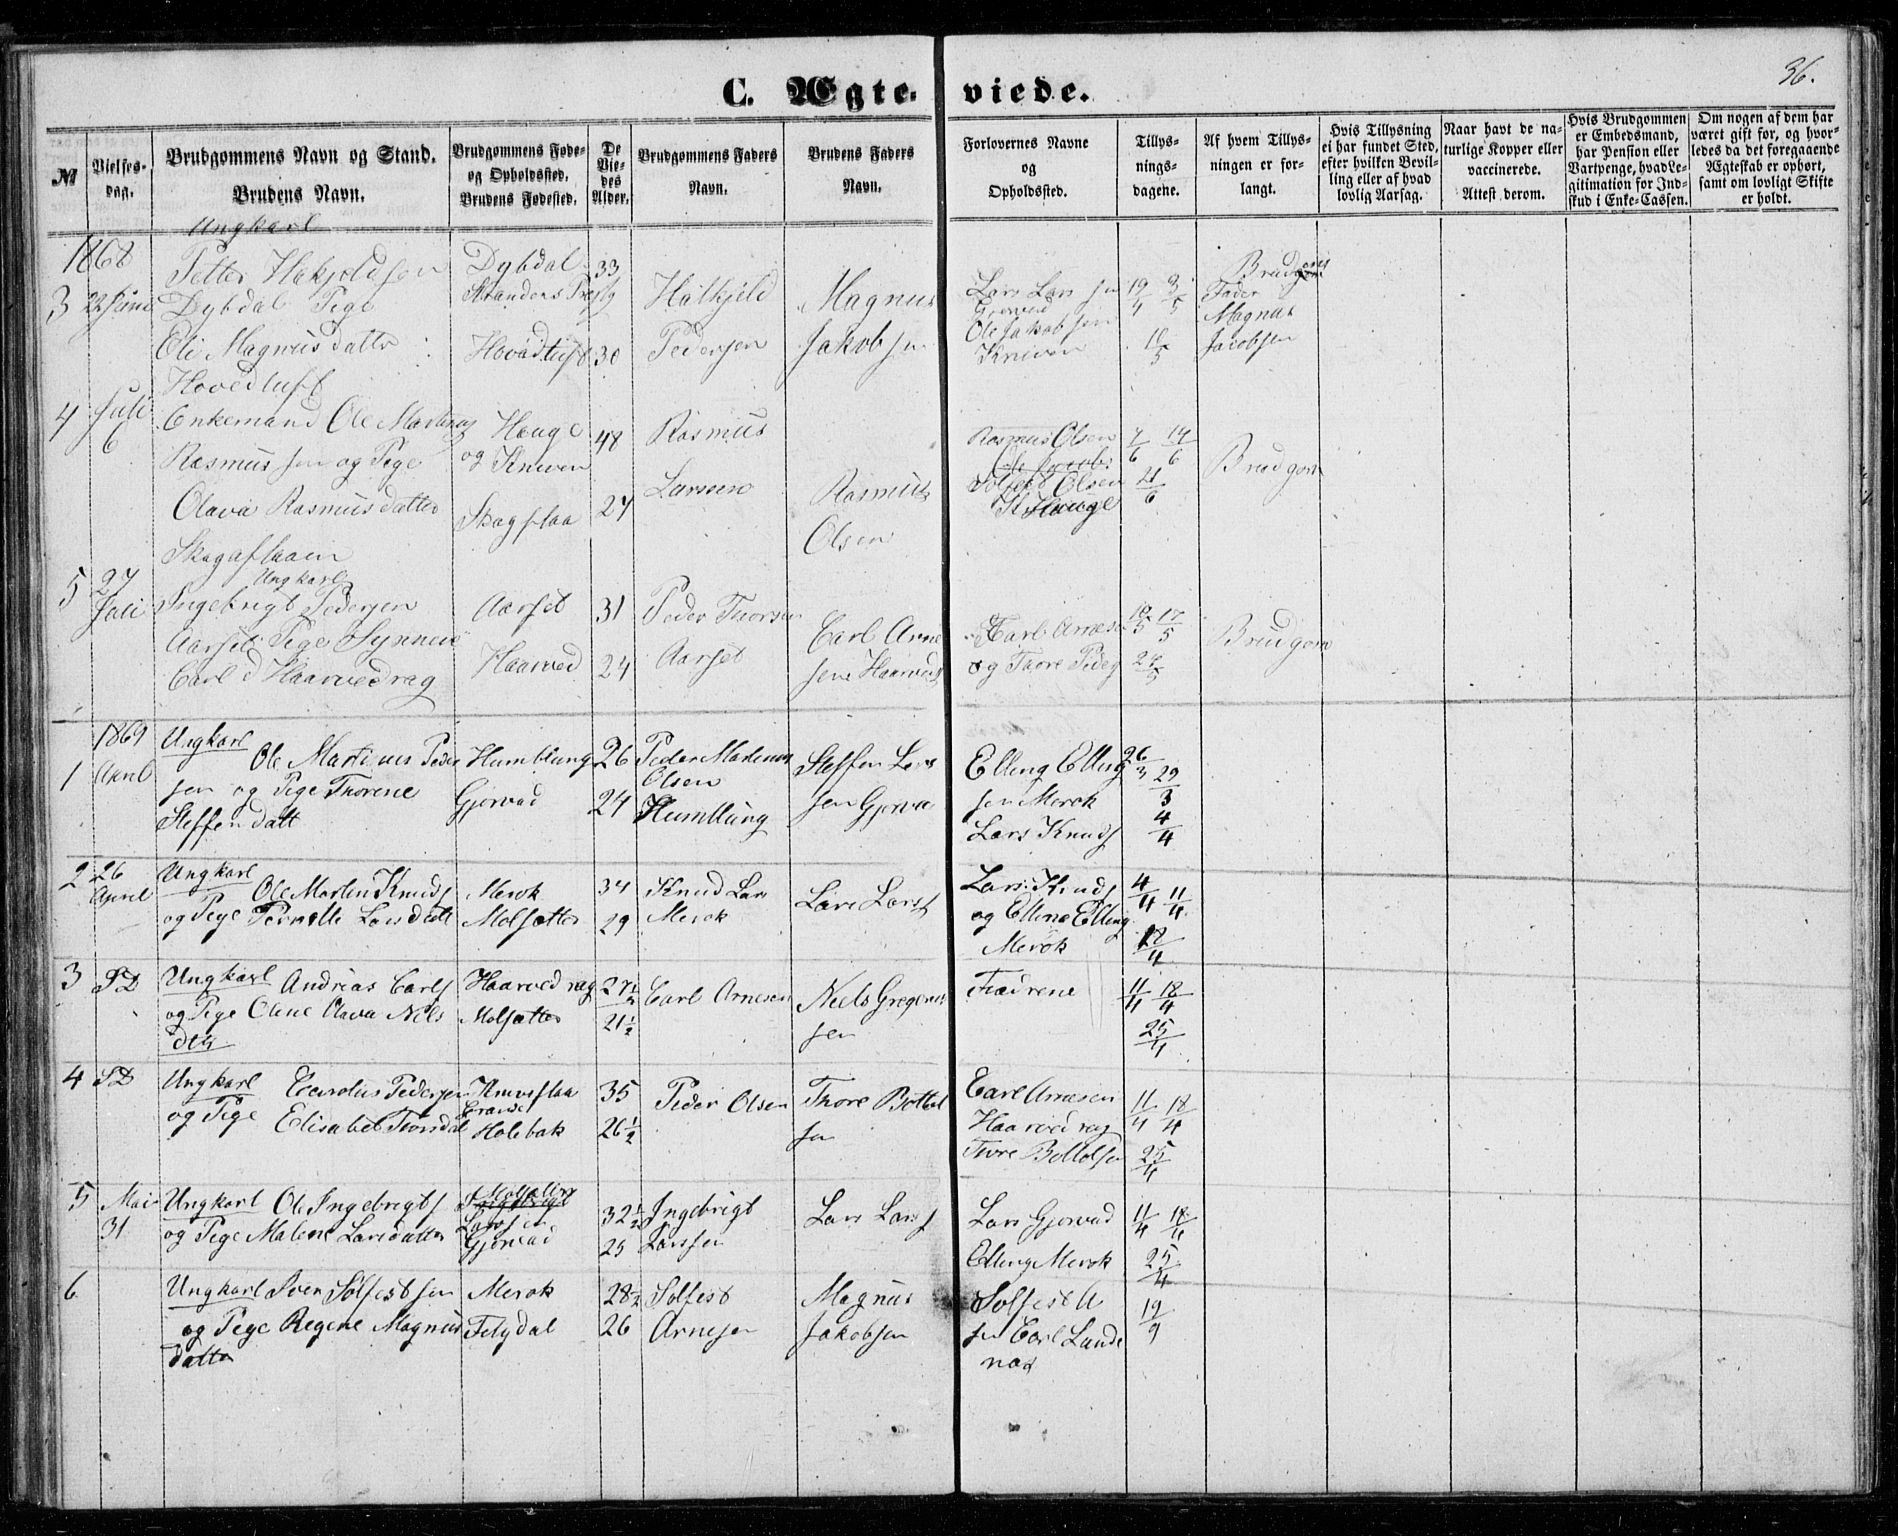 36.
C. Ægteviede.
№
Vielsesdag.
Brudgommens Navn og Stand.
Brudens Navn.
Brudgommens Føde-
og Opholdssted.
Brudens Fødested.
De
Vie-
des
Alder.
Brudgommens Faders
Navn.
Brudens Faders
Navn.
Forlovernes Navne
og
Opholdssted.
Tillys-
nings-
dagene.
Af hvem Tillys-
ningen er for-
langt.
Hvis Tillysning
ei har fundet Sted,
efter hvilken Bevil-
ling eller af hvad
lovlig Aarsag.
Naar havt de na-
turlige Kopper eller
vaccinerede.
Attest derom.
Hvis Brudgommen
er Embedsmand,
har Pension eller
Vartpenge, hvad Le-
gitimation for Ind-
skud i Enke-Cassen.
Om nogen af dem har
været gift før, og hvor-
ledes da det foregaaende
Ægteskab er ophørt,
samt om lovligt Skifte
er holdt.
1868
3 22 Juni
Ungkarl
Petter Hokjeldsen
Dybdal Pige
Oli Magnusdatter
Hovedtuft
Dybdal
Strandens
Hovedtuft
33
30
Halkjeld
Pedersen
Magnus
Jakobsen
Lars Larssen
Gjørvad
Ole Jakobsen
Kniven
19/4 3/5
10/5
Brudens
Fader
Magnus
Jacobsen
4 Juli
6
Enkemand Ole Martinus
Rasmussen og Pige
Olava Rasmusdatter
Skagaflaain
Houge
og Kniven
Skagflaa
48
27
Rasmus
Larsen
Rasmus
Olsen
Rasmus Olsen
Ole Jacobs
Solfest Olsen
Houge
7/6 14/6
21/6
Brudgom
5 27
Juli
Ungkarl
Ingebrigt Pedersen
Aarset Pige Synneve
Carl d Haarvedrag
Aarset
Haarved
31
24
Peder Thorsen
Aarset
Carl Arne
sen Haarved
Carl Arnesen
og Thore Peders
10/5 17/5
24/5
Brudgom
1869
1 April
Ungkarl Ole Martinus Peder
sen og Pige Thorene
Steffendatt
Humblung
Gjørvad
26
24
Peder Martinus
Olsen
Humblung
Steffen Lars
sen Gjørva
Elling Elling
sen Merok
Lars Knuds
26/3 29/3
4/4
2 26
April
Ungkarl Ole Martin Knuds
og Pige Pernille Larsdatt
Merok
Molsætter
34
29
Knud Lars
Merok
Lars Lars
Lars Knuds
og Elling Elling
Merok
4/4 11/4
18/4
3 SD
Ungkarl Andrias Carls
og Pige Oline Olava Nils
dtr
Haarvedrag
Molsætter
27 1/2
21 1/2
Carl Arnesen
Niels Gregerius
sen
Fædrene
11/4 18/4
25/4
4 SD
Ungkarl Carolus Pedersen
og Pige Elisabet Thorsdat
Knivsflaa
Holebak
35
26 1/2
Peder Olsen
Thore Bottol
sen
Carl Arnesen
Haarvedrag
Tore Bottolsen
11/4 18/4
25/4
5 Mai
31
Ungkarl Ole Ingebrigts
og Pige Malene Larsdatter
Molsæter
Gjørvad
32 1/2
25
Ingebrigt
Larssen
Lars Lars
Lars Gjørvad
Elling Merok
11/4 18/4
25/4
6
Ungkarl Sven Solfestsen
og Pige Regene Magnus
datter
Merok
28 1/2
26
Solfest
Arnesen
Magnus
Jakobsen
Solfest A
sen Carl Lunde
næs
19/9